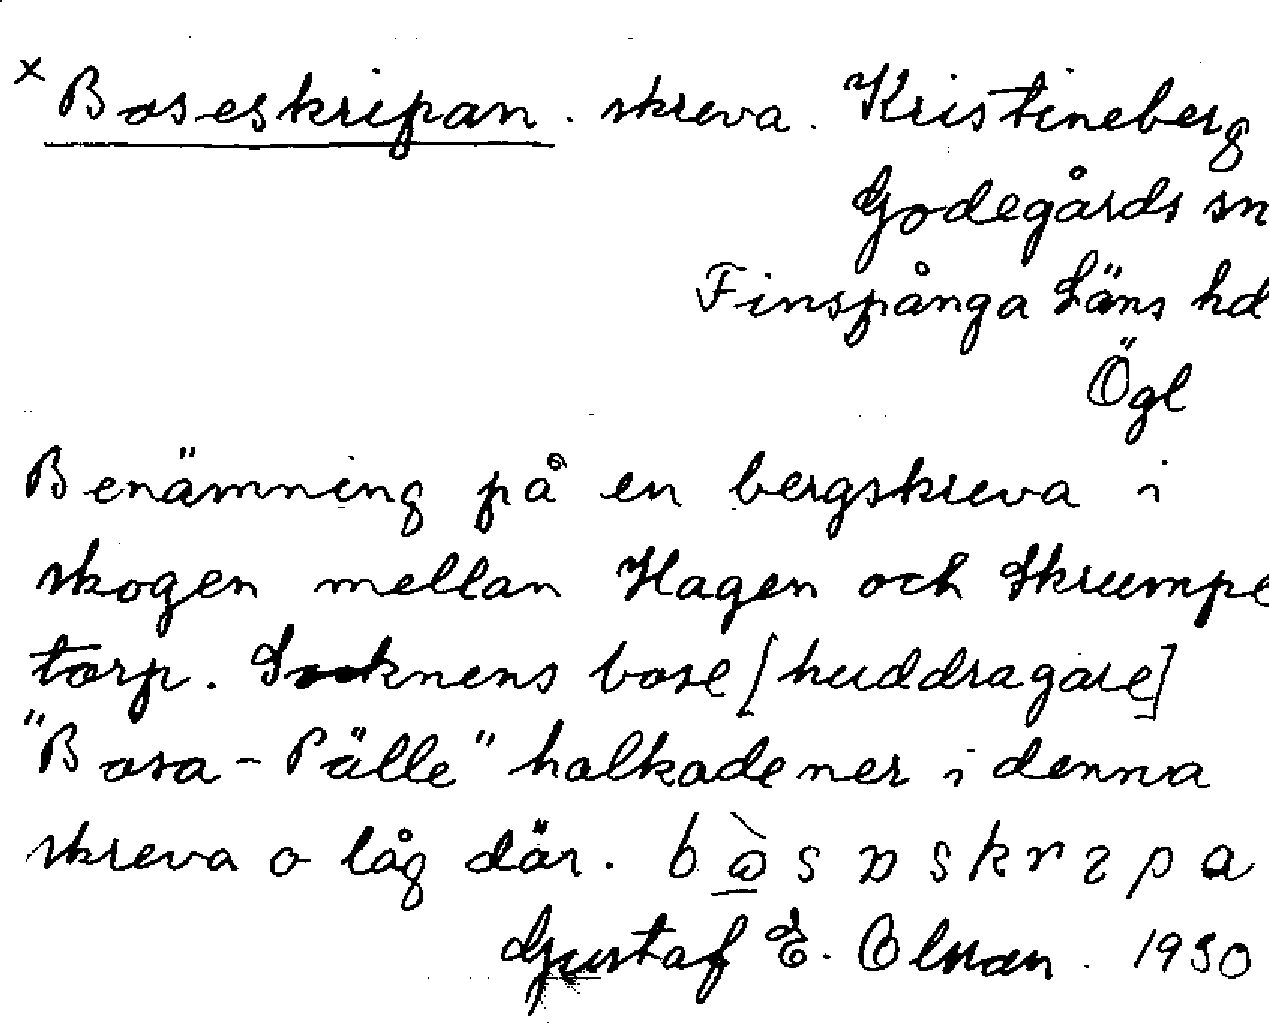 x Boseskripan. skreva. Kristineberg
Godegårds sn
Finspånga Läns hd
Ögl
Benämning på en bergskreva i
skogen mellan Hagen och Skrumpe
torp. Socknens bose [huddragare]
"Bosa-Pälle" halkade ner i denna
skreva o låg där.
Gustaf E. Olsson. 1930